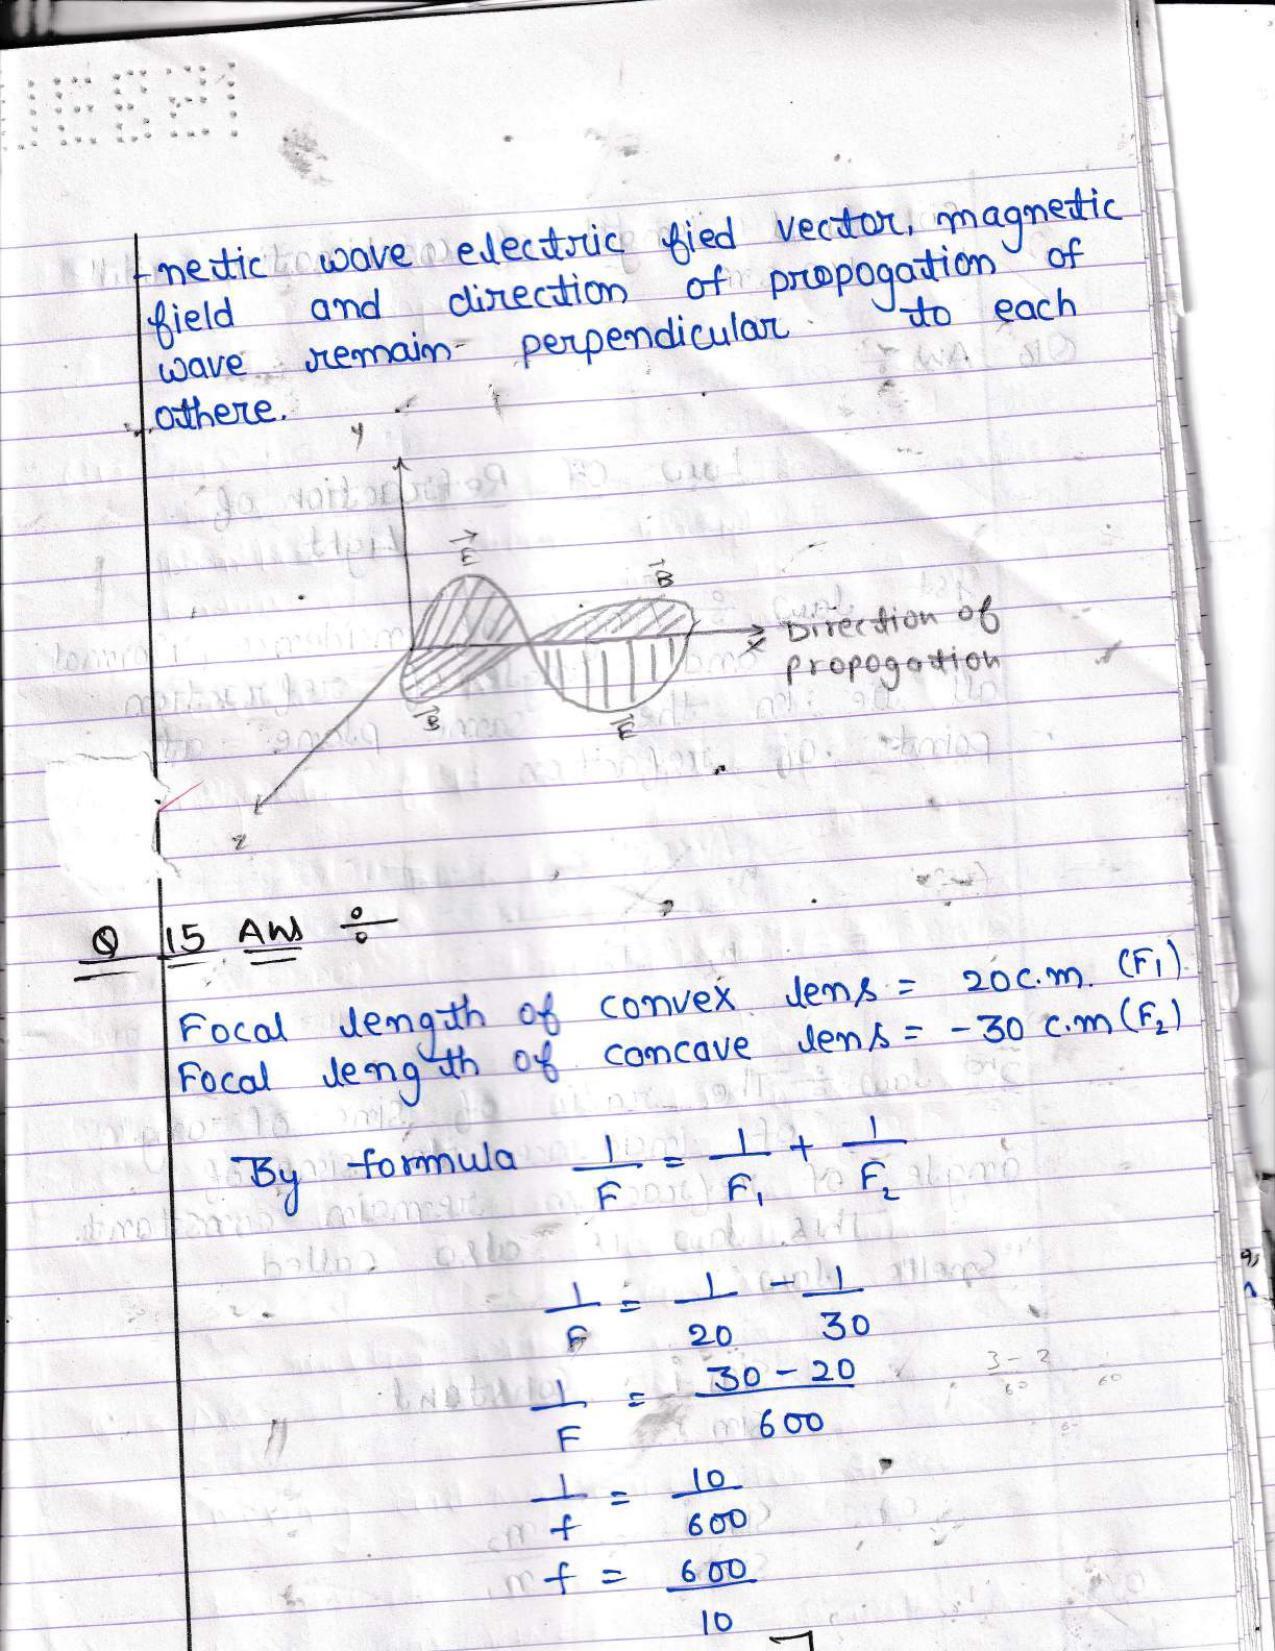 netic wave electric fied vector, magnetic
field and direction of propogation of
wave remain perpendicular to each
othere.
y
E
B
Direction of
x
propogation
B
E
z
Q 15 Ans ÷
Focal length of convex lens = 20c.m. (F₁)
Focal length of concave lens = -30 c.m (F₂)
By formula 1/F = 1/F₁ + 1/F₂
1/F = 1/20 - 1/30
1/F = 30 - 20/600
3 - 2
60
1/f = 10/600
f = 600/10